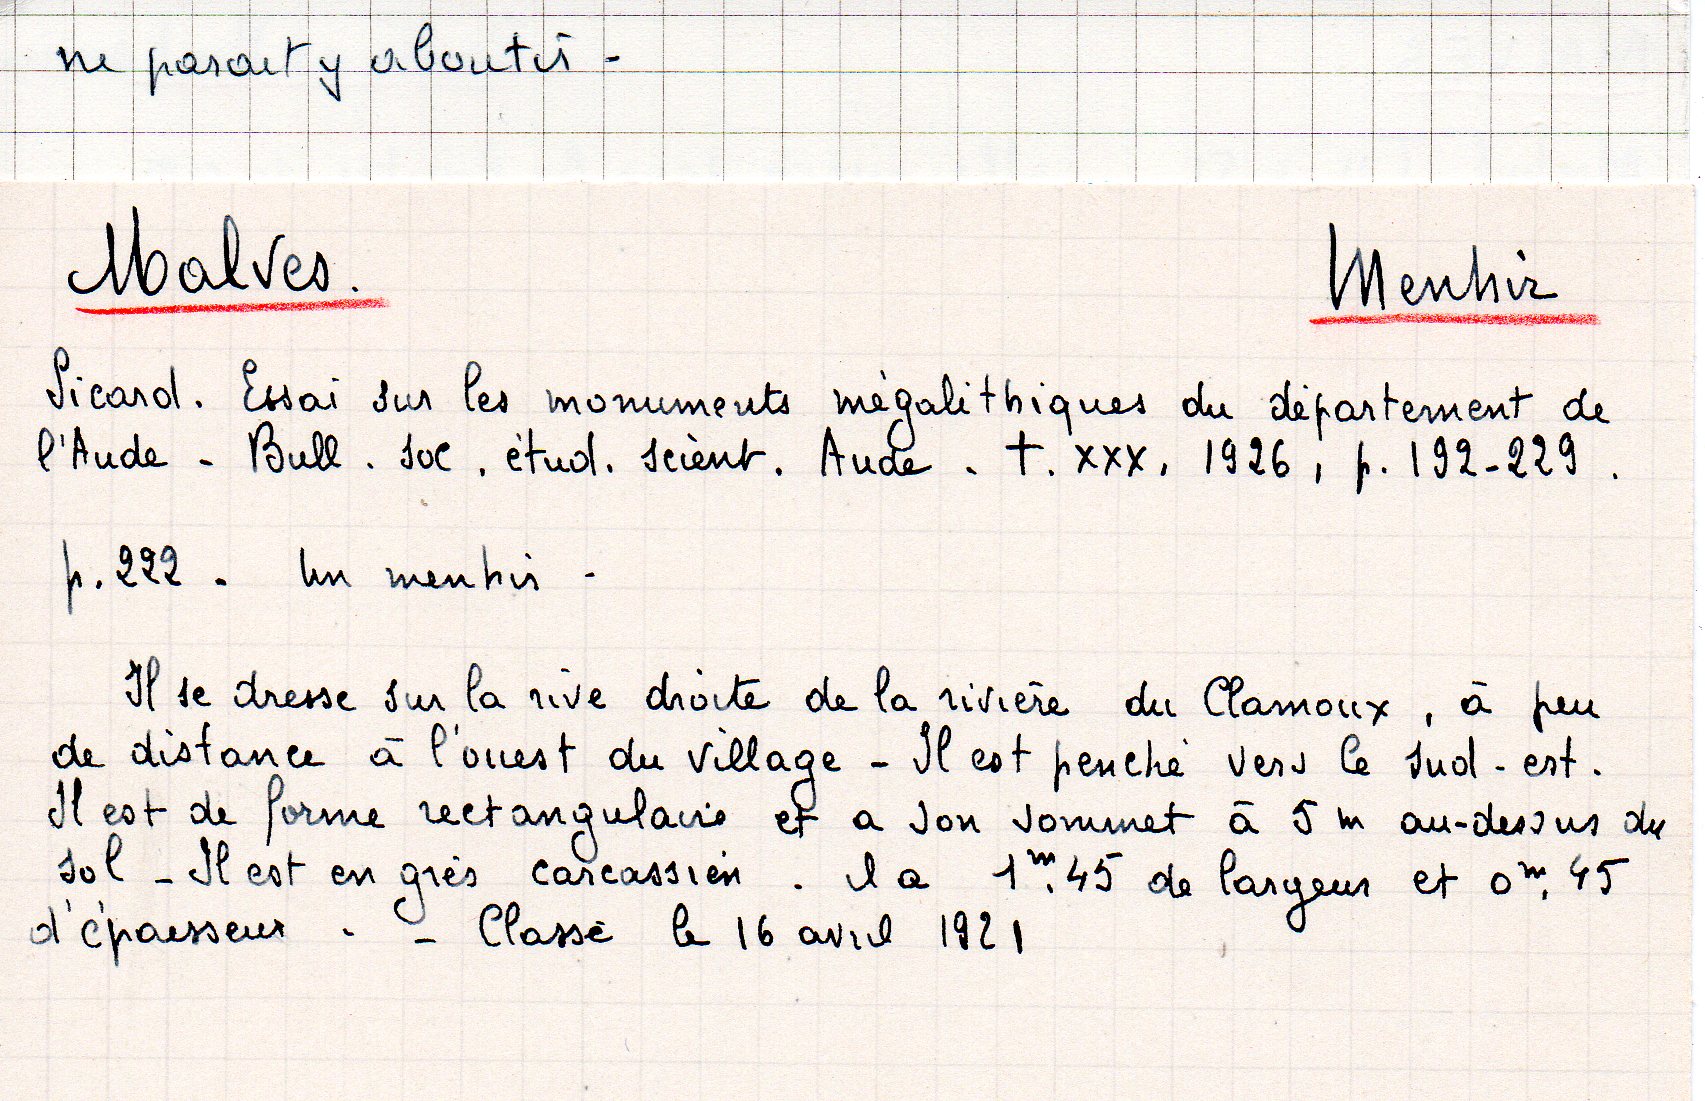 ne parait y aboutir -
Malves. Menhir
Sicard. Essai sur les monuments mégalithiques du département de
l'Aude - Bull. soc. étud. scient. Aude. t. XXX, 1926, p. 192-229.
p. 222. Un menhir -
Il se dresse sur la rive droite de la rivière du Clamoux, à peu
de distance à l'ouest du village - Il est penché vers le sud-est.
Il est de forme rectangulaire et a son sommet à 5 m au-dessus du
sol - Il est en grès carcassien. Il a 1m.45 de largeur et 0m.45
d'épaisseur. - Classé le 16 avril 1921